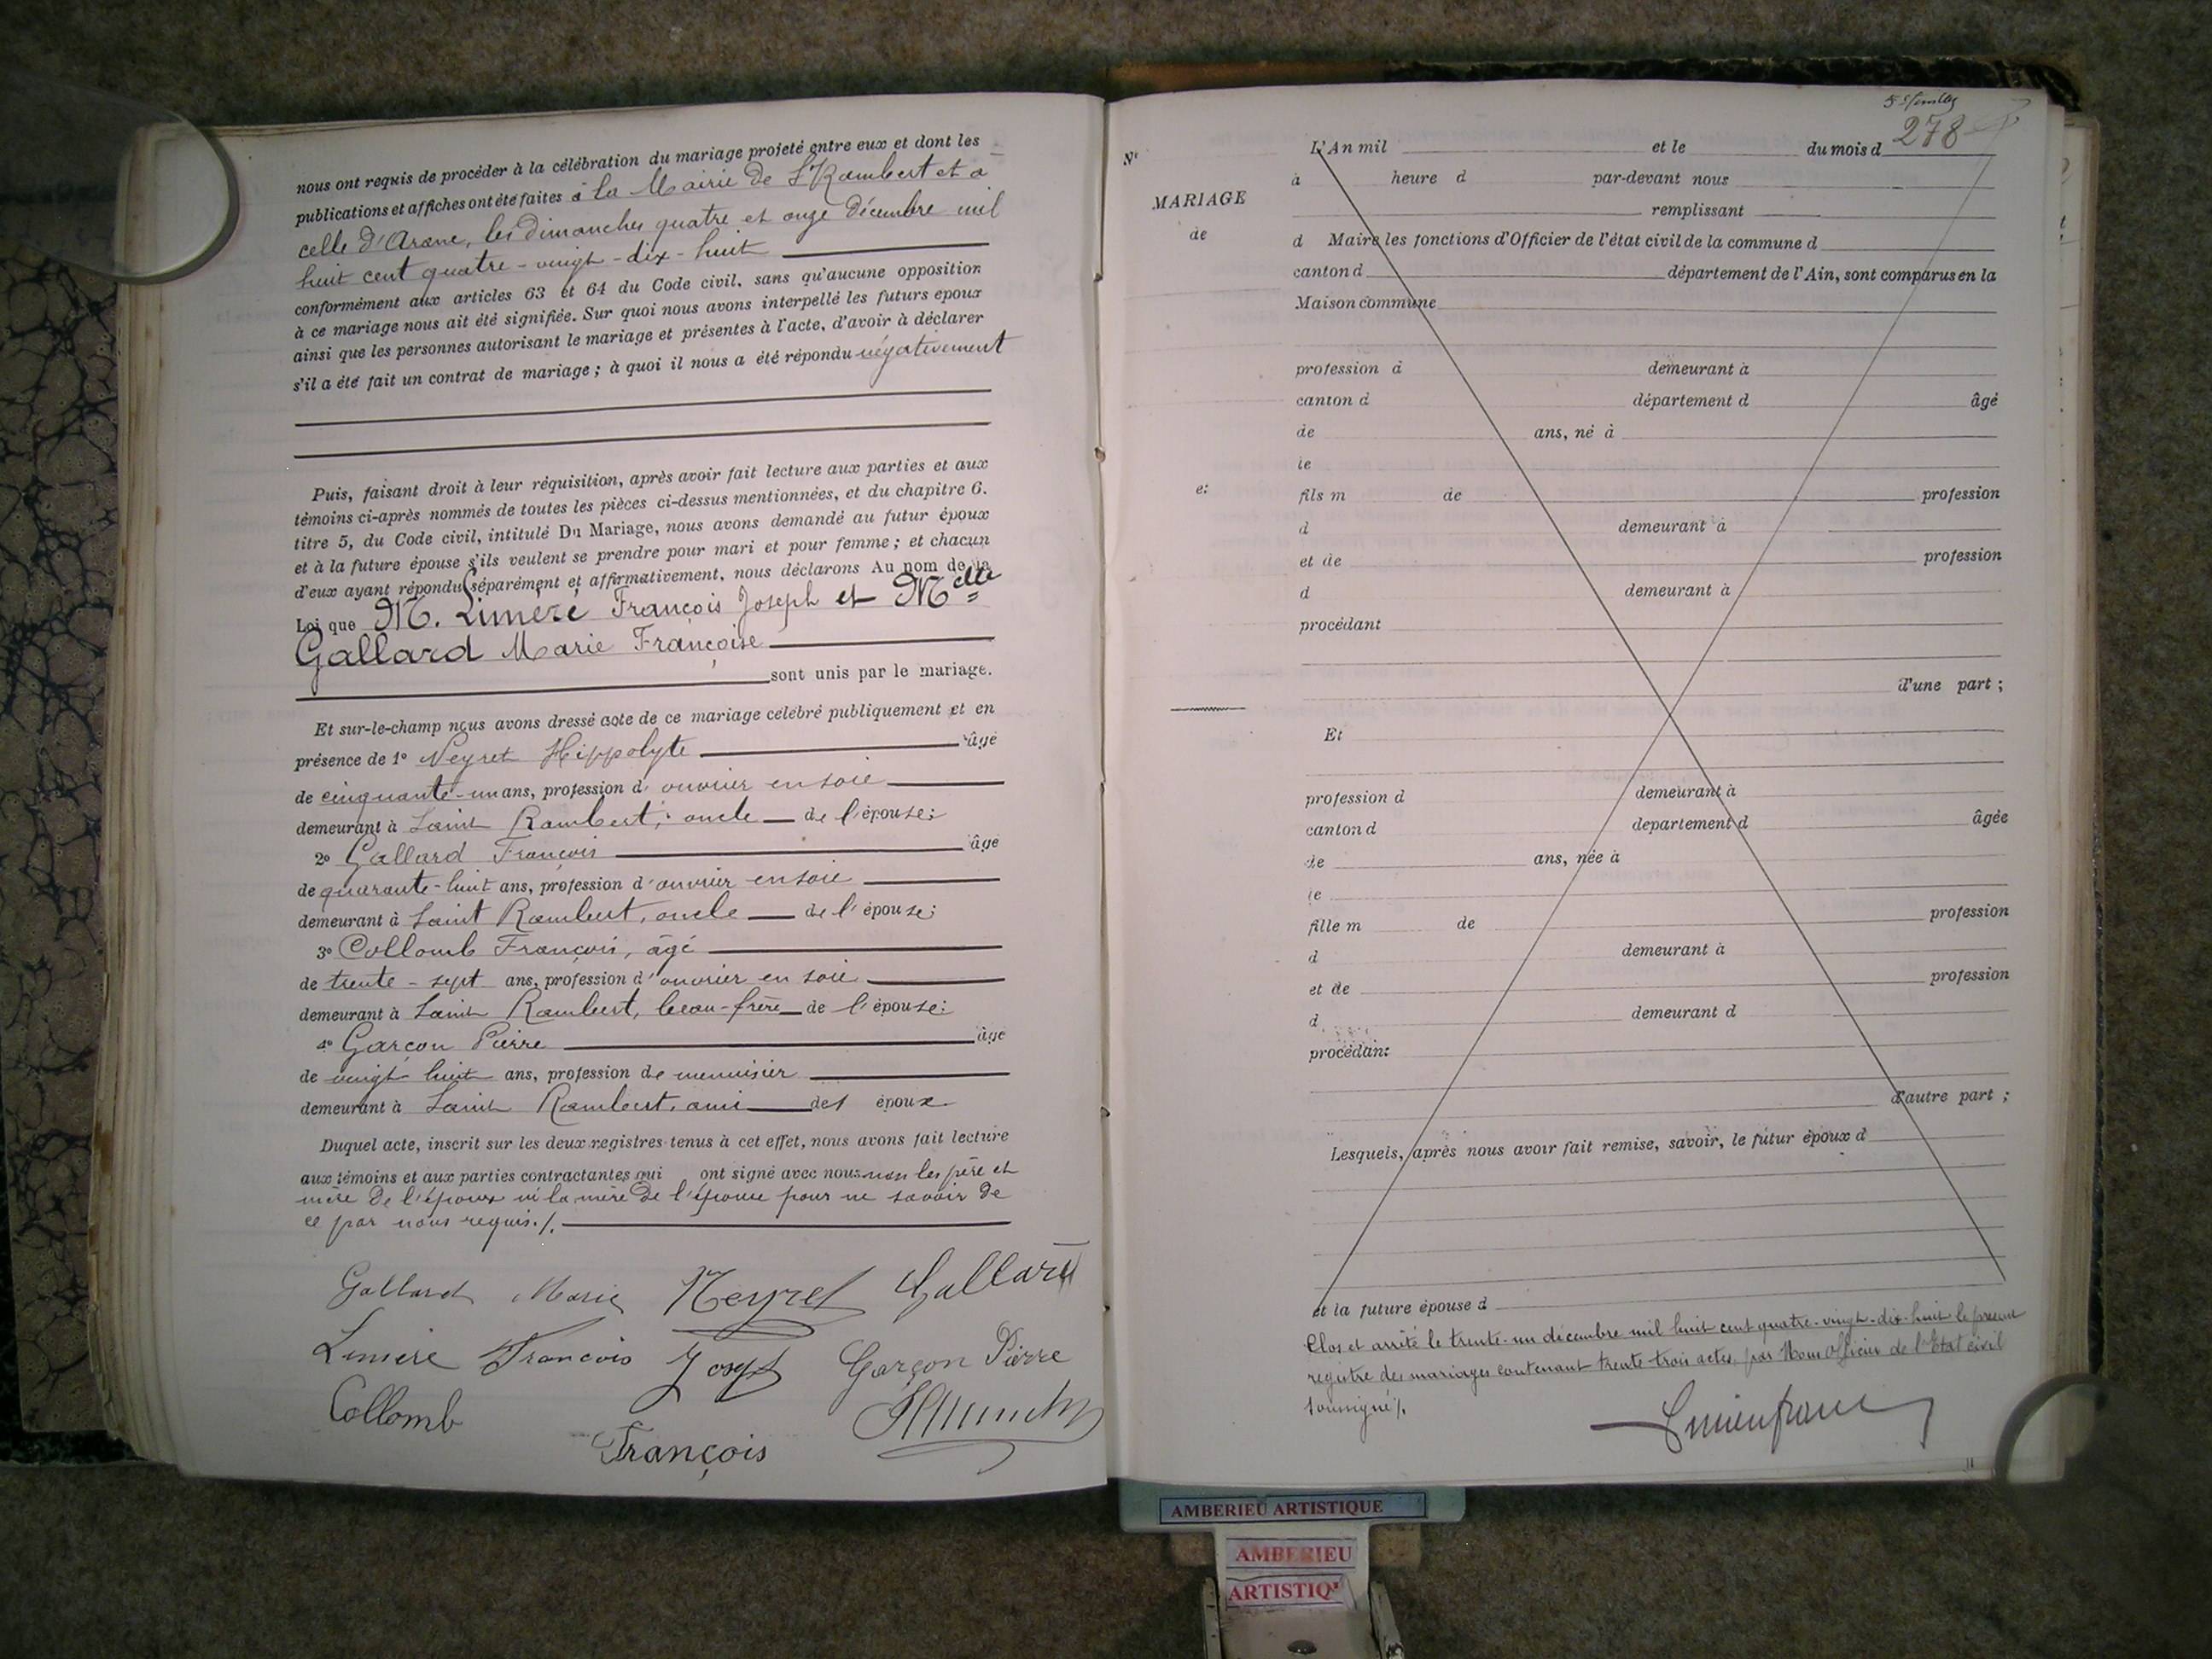 nous ont requis de procéder à la célébration du mariage projeté entre eux et dont les
publications et affiches ont été faites à la Mairie de St Rambert et à
celle d'Aranc, les dimanches quatre et onze décembre mil
huit cent quatre-vingt-dix-huit
conformément aux articles 63 et 64 du Code civil, sans qu'aucune opposition
à ce mariage nous ait été signifiée. Sur quoi nous avons interpellé les futurs epoux
ainsi que les personnes autorisant le mariage et présentes à l'acte, d'avoir à déclarer
s'il a été fait un contrat de mariage ; à quoi il nous a été répondu négativement
Puis, faisant droit à leur réquisition, après avoir fait lecture aux parties et aux
témoins ci-après nommés de toutes les pièces ci-dessus mentionnées, et du chapitre 6.
titre 5, du Code civil, intitulé Du Mariage, nous avons demandé au futur époux
et à la future épouse s'ils veulent se prendre pour mari et pour femme ; et chacun
d'eux ayant répondu séparément et affirmativement, nous déclarons Au nom de la
Loi que M. Liméré François Joseph et Melle
Gallard Marie Françoise
sont unis par le mariage.
Et sur-le-champ nous avons dressé acte de ce mariage célébré publiquement et en
présence de 1° Neyret Hippolyte âgé
de cinquante-un ans, profession d'ouvrier en soie
demeurant à Saint Rambert, oncle de l'épouse;
2° Gallard François âgé
de quarante-huit ans, profession d'ouvrier en soie
demeurant à Saint Rambert, oncle de l'épouse;
3° Collomb François, âgé
de trente-sept ans, profession d'ouvrier en soie
demeurant à Saint Rambert, beau-frère de l'épouse;
4° Garçon Pierre âgé
de vingt huit ans, profession de menuisier
demeurant à Saint Rambert, ami des époux
Duquel acte, inscrit sur les deux registres tenus à cet effet, nous avons fait lecture
aux témoins et aux parties contractantes qui ont signé avec nous non les père et
mère de l'époux ni la mère de l'épouse pour ne savoir de
ce par nous requis./.
Gallard Marie Neyret Gallard
Limere François Joseph Garçon Pierre
Collomb
François
5e feuillet
278
N°
MARIAGE
de
e:
L'An mil et le du mois d
à heure d par-devant nous
remplissant
d Maire les fonctions d'Officier de l'état civil de la commune d
canton d département de l'Ain, sont comparus en la
Maison commune
profession d demeurant à
canton d département d âgé
de ans, né à
le
fils m de profession
d demeurant à
et de profession
d demeurant à
procédant
d'une part ;
Et
profession d demeurant à
canton d departement d âgée
de ans, née à
le
fille m de profession
d demeurant à
et de profession
d demeurant d
procédant
d'autre part ;
Lesquels, après nous avoir fait remise, savoir, le futur époux d
et la future épouse d
Clos et arrêté le trente-un décembre mil huit cent quatre-vingt-dix-huit le présent
registre des mariages contenant trente trois actes, par Nous Officier de l'Etat civil
soussigné/.
AMBERIEU ARTISTIQUE
AMBERIEU
ARTISTIQ